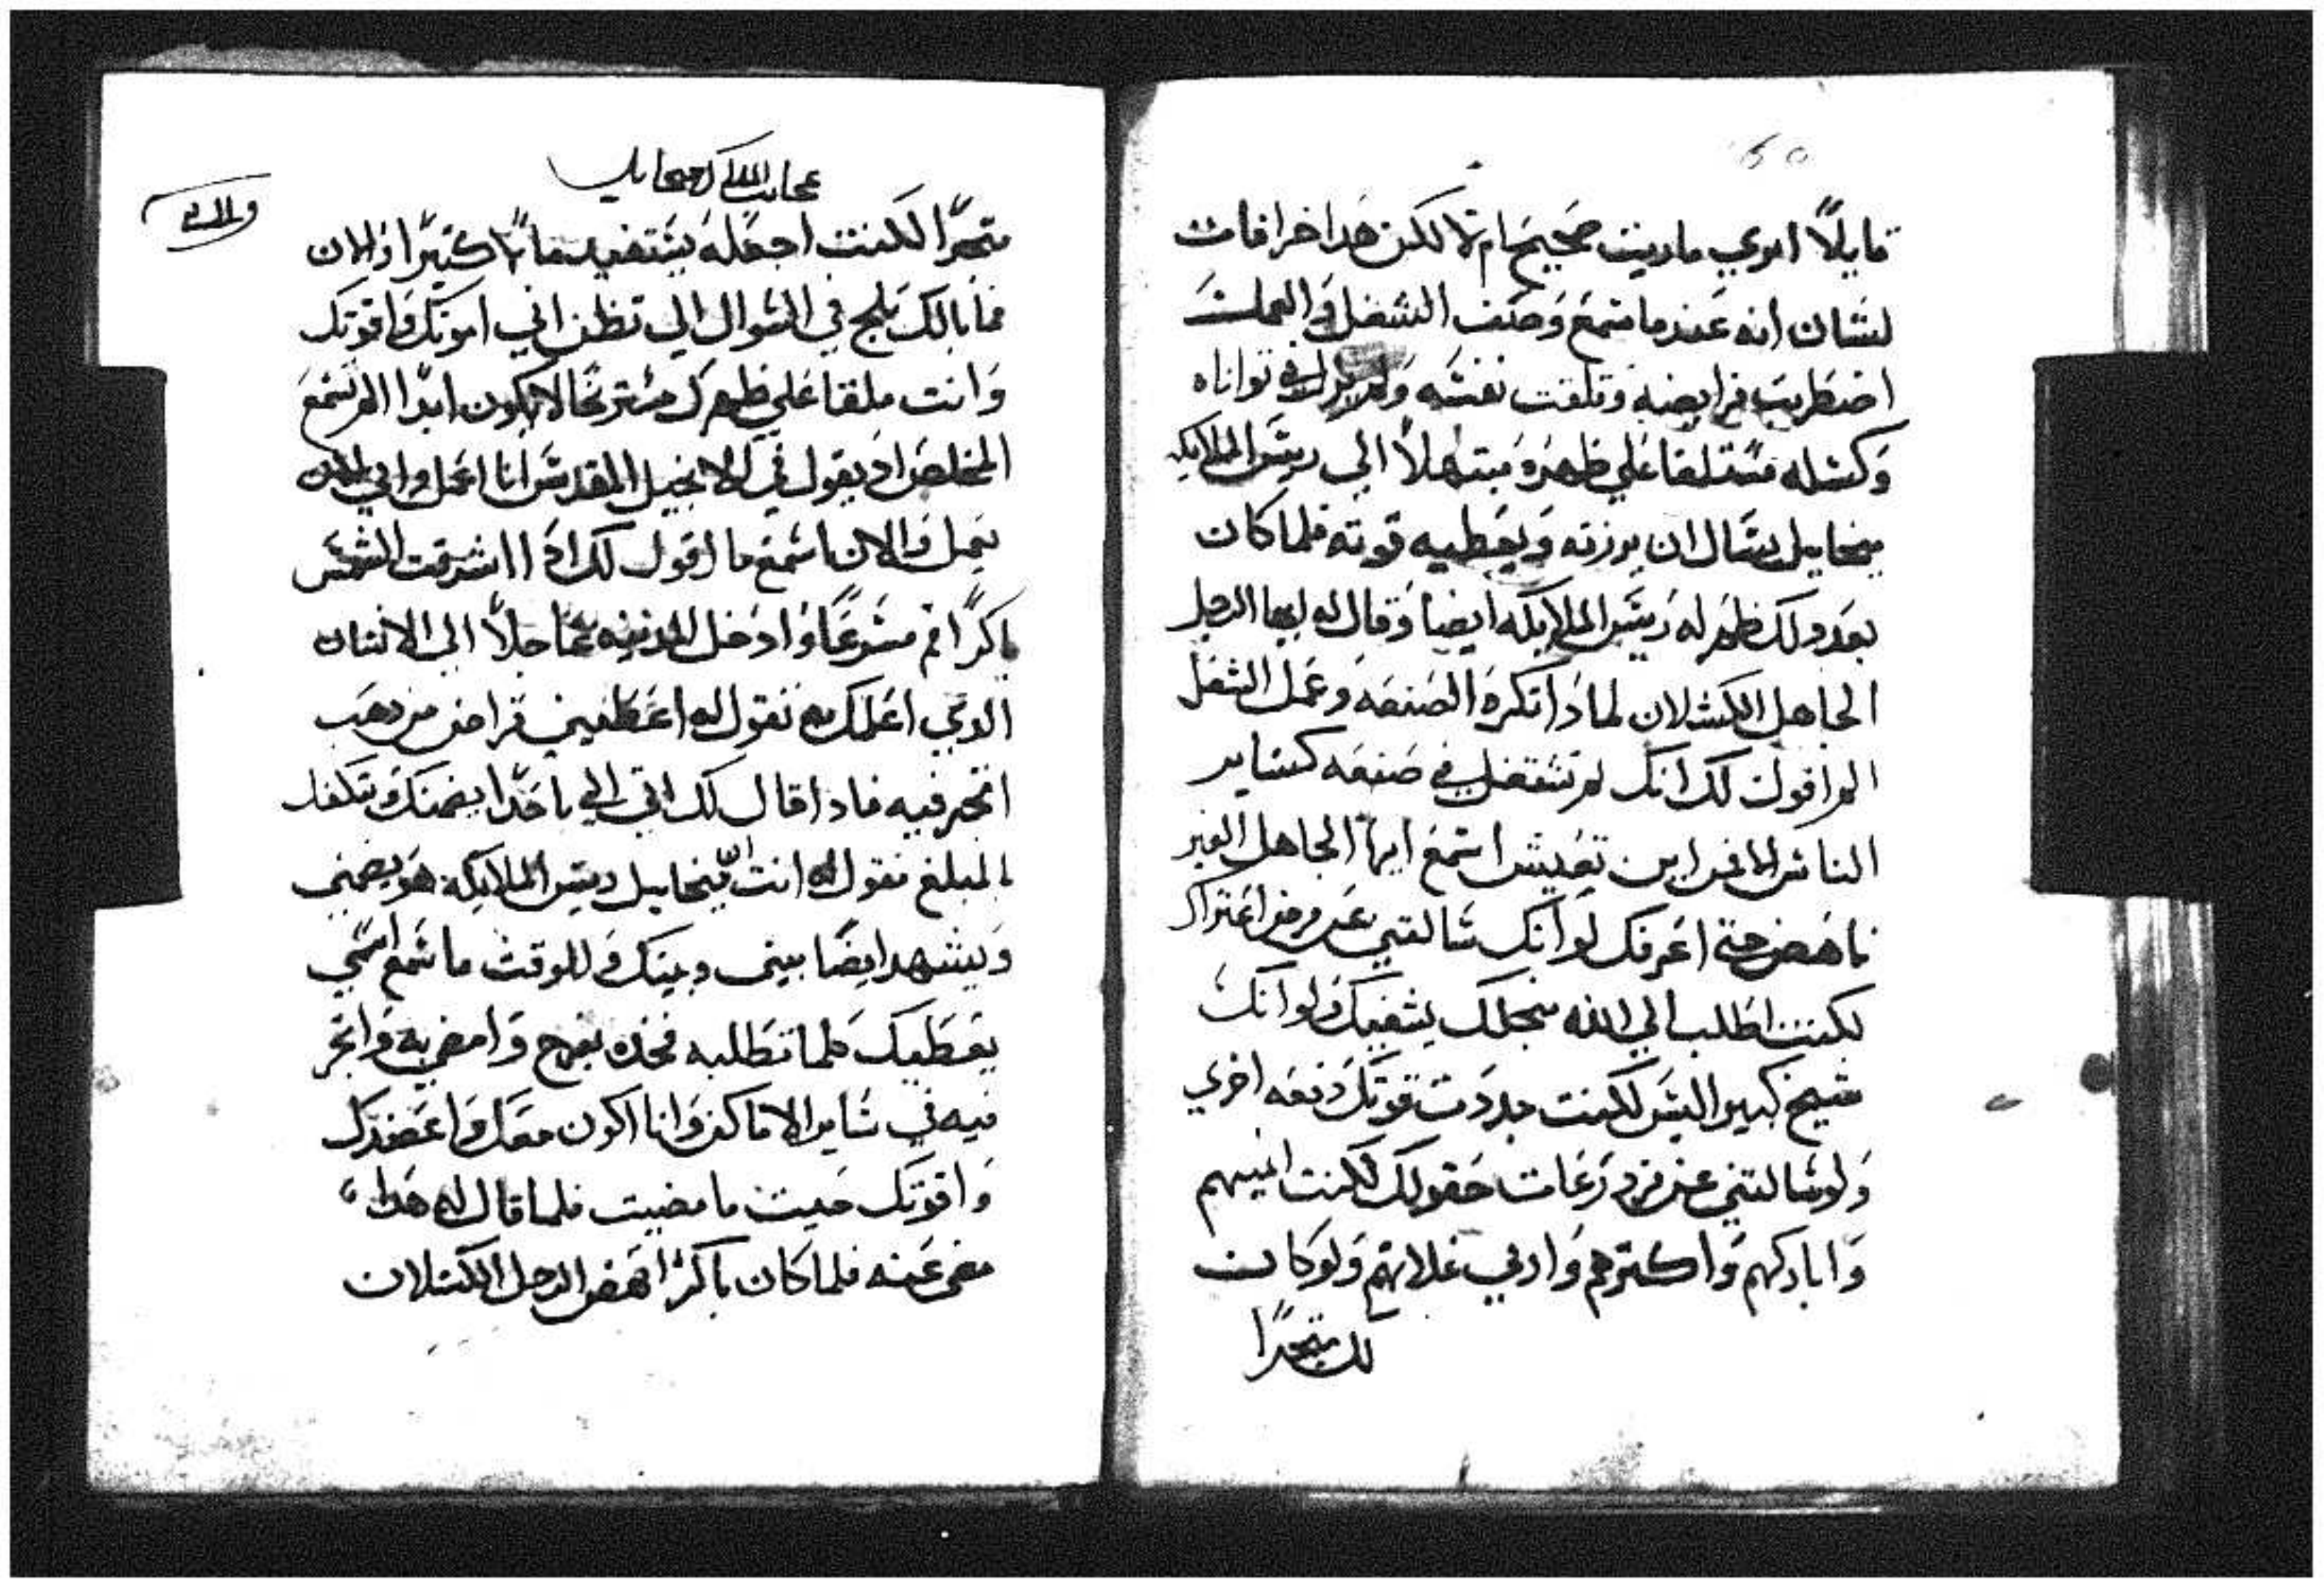 قايلاً اتري ماريت صحيح ام لا لكن هدا خرافات
لشان انه عندما سمع وصف الشغل والعملت
اضطربت فرايضه وتلفت نفسه ولم يزل في تواناه
وكسله مستلقا علي ظهره مبتهلاً الي ريس الملايكه
ميخاييل يسال ان يرزقه ويعطيه قوته فلما كان
بعد دلك ظهر له ريس الملايكه ايضا وقال له ايها الرجل
الجاهل الكسلان لمادا تكره الصنعه وعمل الشغل
الم اقول لك انك لم تشتغل في صنعه كساير
الناس فمن اين تعيش اسمع ايها الجاهل الغير
ناهض حتي اعرفك لو انك سالتني عن مرض اعتراك
لكنت اطلب الي الله من اجلك يشفيك ولو انك
شيخ كبير السن لكنت جددت قوتك دفعه اخري
ولو سالتني عن زراعات حقولك لكنت انميهم
واباركهم واكترهم وادني غلاتهم ولو كانت
لك متجرًا
عجايب الملاك ميخاييل
متجرًا لكنت اجعله يستفيد مالاً كتيرًا والان
فما بالك تلج في السوال الي تظن اني امونك واقوتك
وانت ملقا علي ظهرك مستريحًا لا يكون ابدًا الم تسمع
المخلص اد يقول في الانجيل المقدس انا اعمل وابي
يعمل والان اسمع ما اقول لك ادا اشرقت الشمس
باكرًا قم مسرعًا وادخل المدينه عاجلاً الي الانسان
الدي اعلمك به تقول له اعطيني قراض من دهب
اتجر فيه فادا قال لك اتي الي باحدًا يضمنك وتكفل
بالمبلغ تقول له انت ميخاييل ريس الملايكه هو يضمني
ويشهد ايضًا بيني وبينك وللوقت ما سمع اسمي
يعطيك كلما تطلبه فخده بفرح وامضي به واتجر
فيه في ساير الاماكن وانا اكون معك واعضدك
واقوتك حيت ما مضيت فلما قال له هدا
مضي عنه فلما كان باكرًا نهض الرجل الكسلان